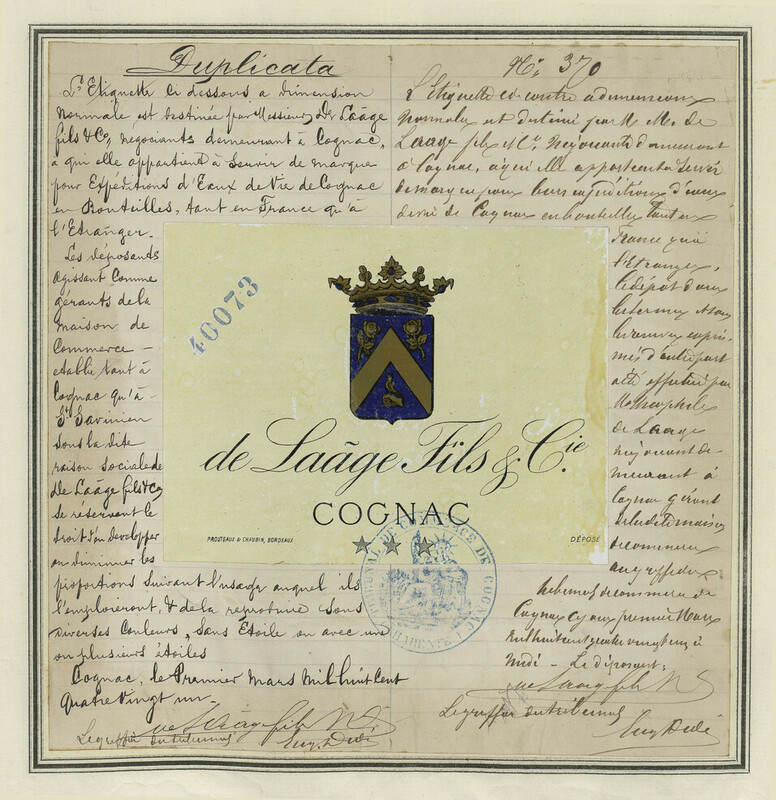 Duplicata
L'Etiquette ci dessous a dimension
normale est destinée par Messieurs De Laâge
fils & Co, negociants demeurant à Cognac,
à qui elle appartient à Servir de marque
pour Expéditions d'Eaux de Vie de Cognac
en Bouteilles, tant en France qu'à
l'Etranger.
Les déposants
agissant Comme
gérants de la
maison de
Commerce —
etablie tant à
Cognac qu'à -
St Savinien
sous la dite
raison sociale de
De Laâge fils & Co
se réservent le
droit d'en developper
ou diminuer les
proportions suivant l'usage auquel ils
l'emploieront, & de la reproduire sous
diverses Couleurs, Sans Etoile ou avec une
ou plusieurs étoiles
Cognac, le Premier Mars Mil huit Cent
Quatre Vingt un.
de Laage fils
Le greffier du tribunal
No. 370
L'Etiquette ci contre a dimensions
normales est destinée par M. M. de
Laage fils Negociants demeurant
à Cognac, à qui elle appartient à Servir
de marque pour leurs expéditions d'eaux
de vie de Cognac en bouteilles tant en
France qu'à
l'Etranger,
le dépôt d'une
été effectué par
de Laage
négociant de-
meurant à
Cognac gérant
de la dite maison
de commerce
au greffe du
tribunal de commerce de
Cognac ce jour premier Mars
Mil huit cent quatre vingt un à
Midi – Le déposant,
de Laage fils
Le greffier du tribunal
46073
de Laâge Fils & Cie.
COGNAC
PROUTEAUX & CHAUBIN, BORDEAUX
DÉPOSÉ
TRIBUNAL DE COMMERCE DE COGNAC
(CHARENTE)